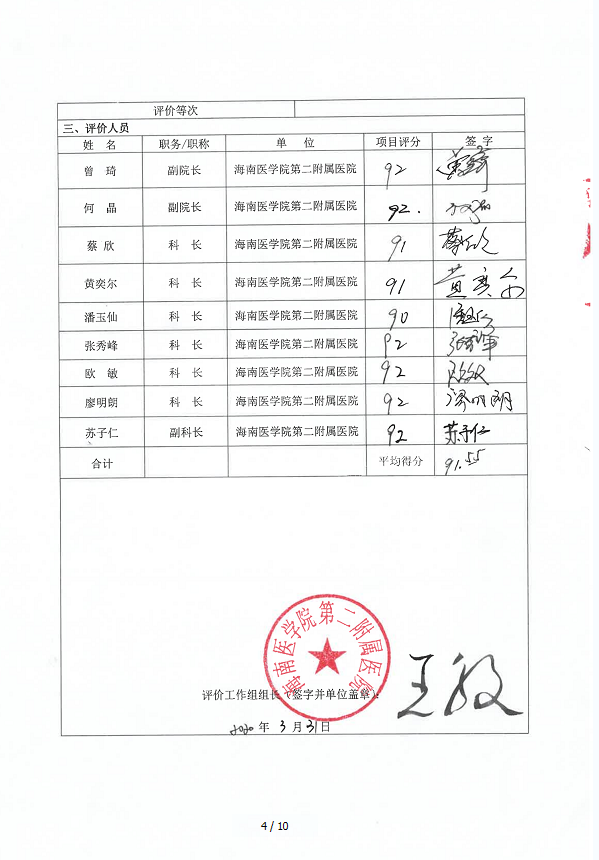 评价等次
三、评价人员
姓 名 职务/职称 单 位 项目评分 签 字
曾 琦 副院长 海南医学院第二附属医院 92
何 晶 副院长 海南医学院第二附属医院 92.
蔡 欣 科 长 海南医学院第二附属医院 91 蔡欣
黄奕尔 科 长 海南医学院第二附属医院 91 黄奕尔
潘玉仙 科 长 海南医学院第二附属医院 90
张秀峰 科 长 海南医学院第二附属医院 92
欧 敏 科 长 海南医学院第二附属医院 92
廖明朗 科 长 海南医学院第二附属医院 92 廖明朗
苏子仁 副科长 海南医学院第二附属医院 92 苏子仁
合计 平均得分 91.55
海南医学院第二附属医院
评价工作组组长（签字并单位盖章）:
2020 年 3 月 31日
4 / 10